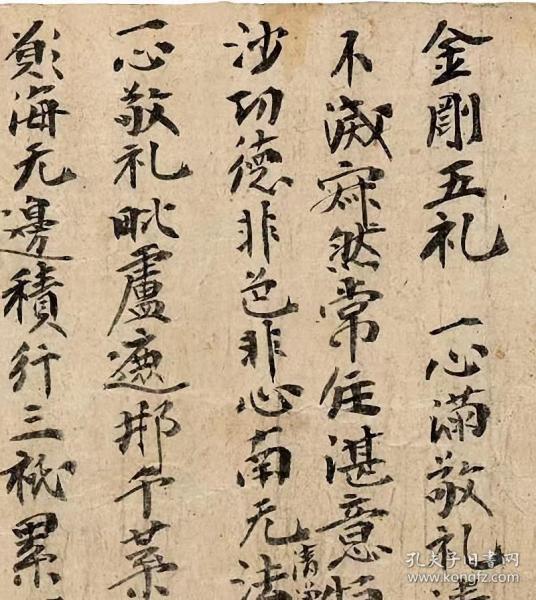 金剛五礼 一心滿敬礼
不滅寂然常住湛意
沙功德非色非心南无法
清
一心敬礼毗盧遮那千葉
願海无邊積行三祇累
孔夫子旧书网
www.kongfz.com